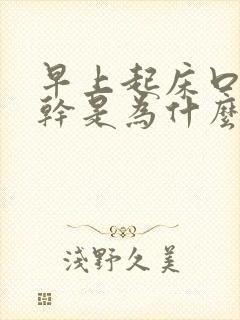 早上起床口
幹是為什麼
淺野久美